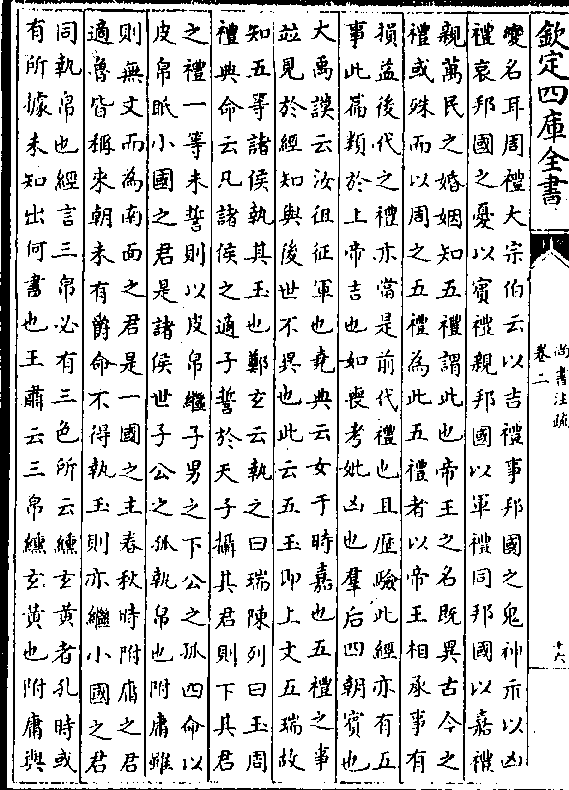 欽定四庫全書
尚書注疏
卷二
十六
變名耳周禮大宗伯云以吉禮事邦國之鬼神示以凶
禮哀邦國之憂以賓禮親邦國以軍禮同邦國以嘉禮
親萬民之婚姻知五禮謂此也帝王之名既異古今之
禮或殊而以周之五禮為此五禮者以帝王相承事有
損益後代之禮亦當是前代禮也且歴驗此經亦有五
事此篇類於上帝吉也如喪考妣凶也羣后四朝賓也
大禹謨云汝徂征軍也堯典云女于時嘉也五禮之事
並見於經知與後世不異也此云五玉即上文五瑞故
知五等諸侯執其玉也鄭玄云執之曰瑞陳列曰玉周
禮典命云凡諸侯之適子誓於天子攝其君則下其君
之禮一等未誓則以皮帛繼子男之下公之孤四命以
皮帛眡小國之君是諸侯世子公之孤執帛也附庸雖
則無文而為南面之君是一國之主春秋時附庸之君
適魯皆稱來朝未有爵命不得執玉則亦繼小國之君
同執帛也經言三帛必有三色所云纁玄黄者孔時或
有所據未知出何書也王肅云三帛纁玄黄也附庸與